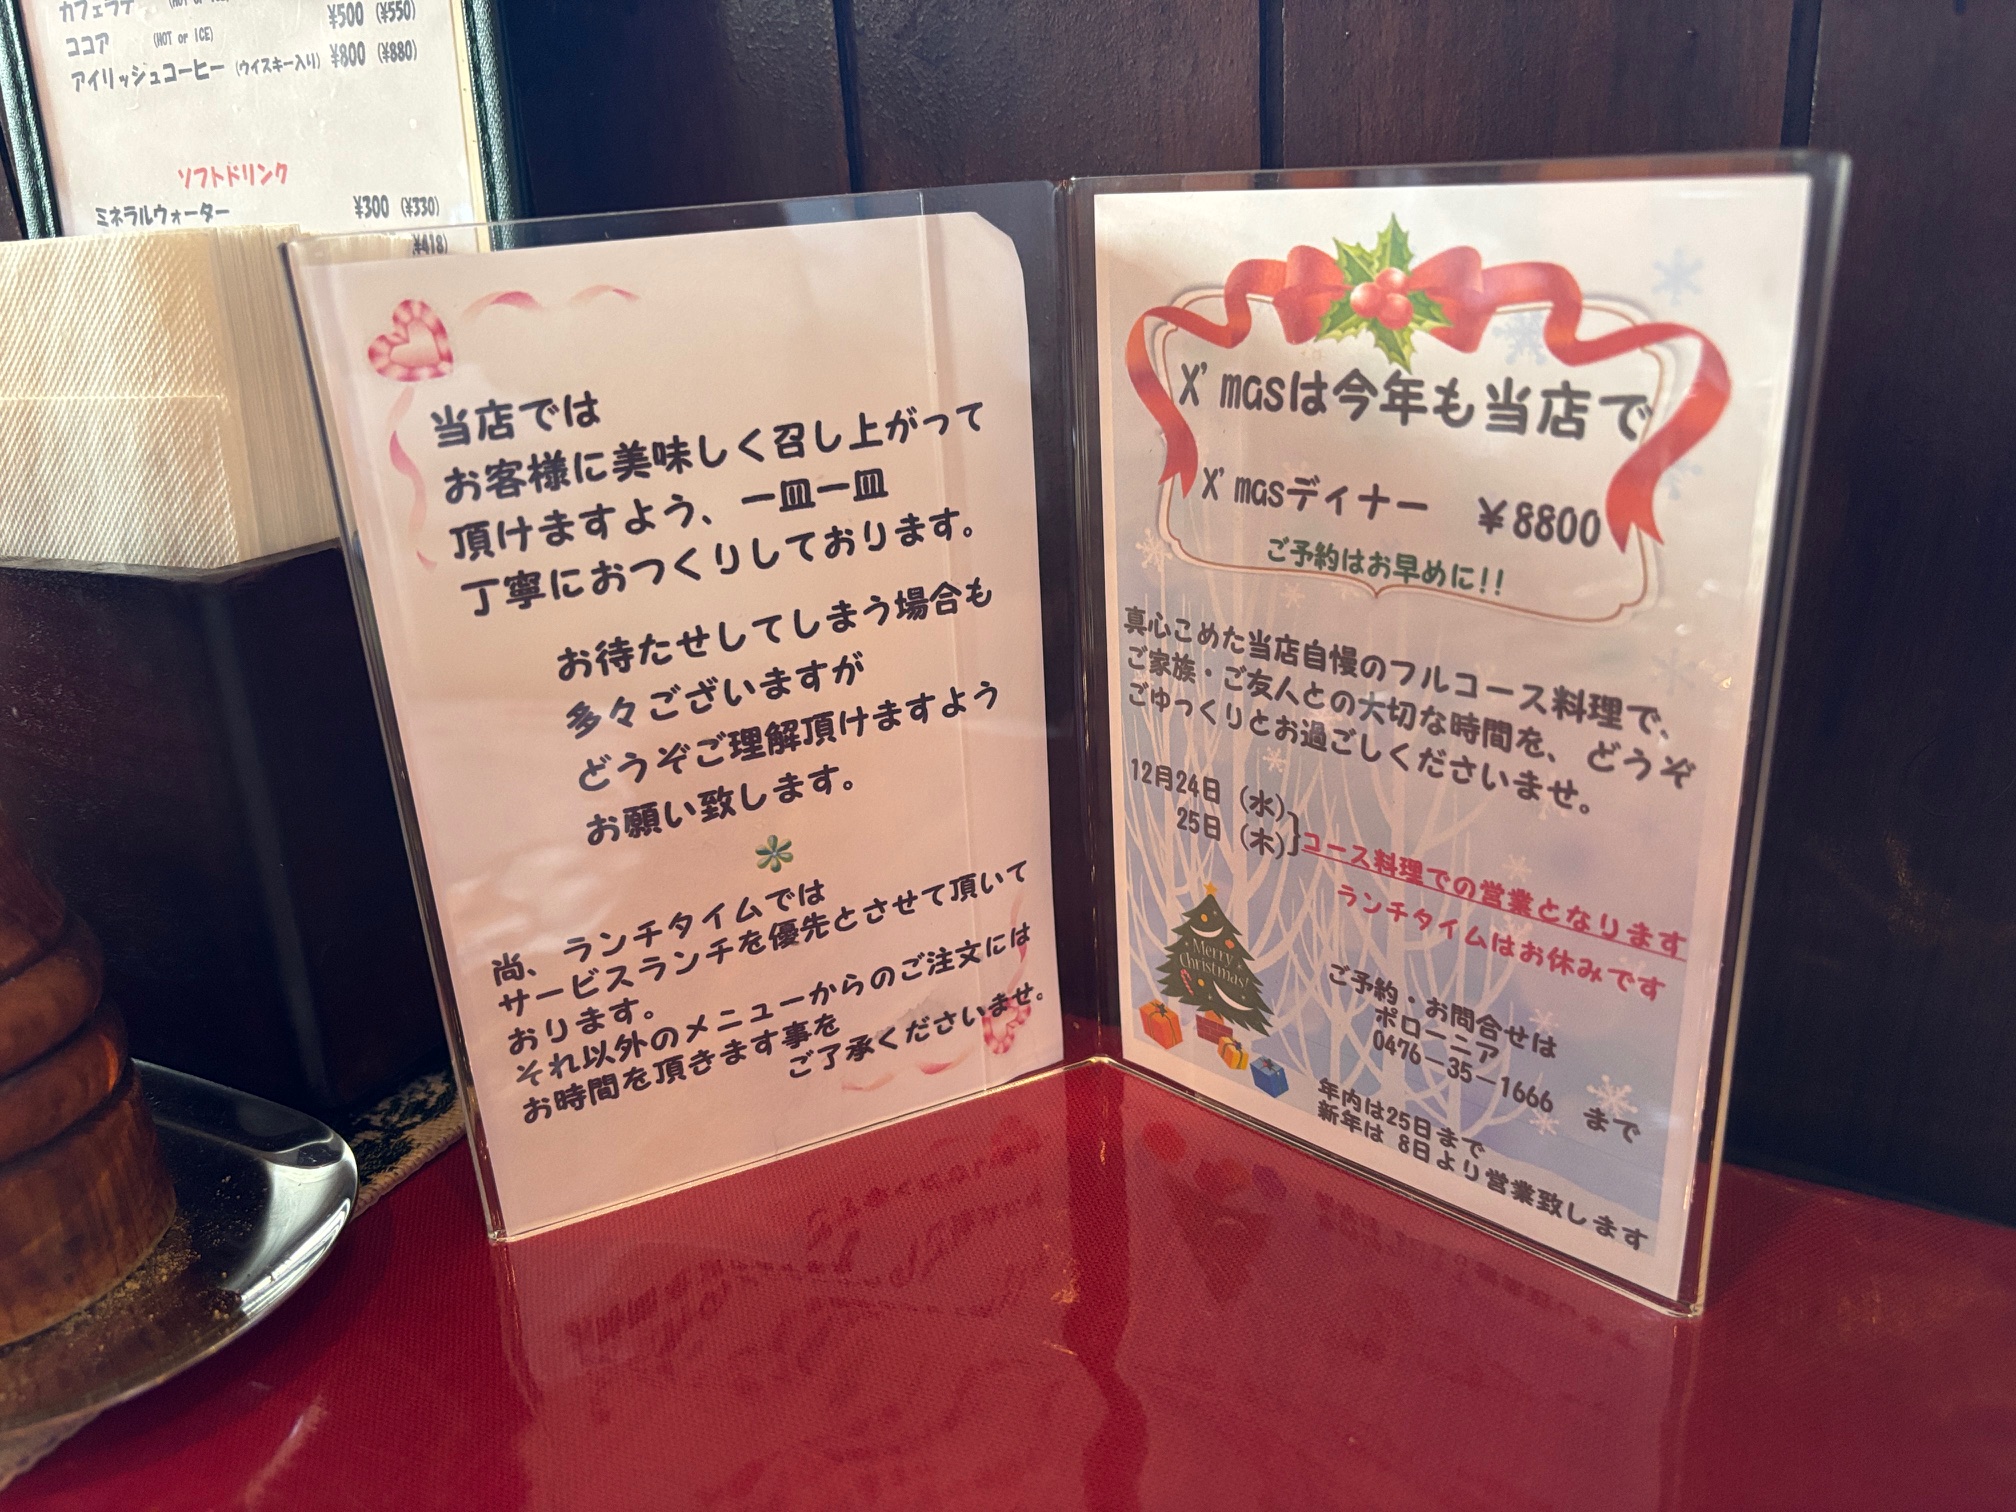 カフェラテ
¥500 (¥550)
ココア (HOT or ICE)
アイリッシュコーヒー (ウイスキー入り) ¥800 (¥880)
ソフトドリンク
ミネラルウォーター ¥300 (¥330)
¥418)
当店では
お客様に美味しく召し上がって
頂けますよう、一皿一皿
丁寧におつくりしております。
お待たせしてしまう場合も
多々ございますが
どうぞご理解頂けますよう
お願い致します。
尚、ランチタイムでは
サービスランチを優先とさせて頂いて
おります。
それ以外のメニューからのご注文には
お時間を頂きます事を
ご了承くださいませ。
X'masは今年も当店で
X'masディナー ¥8800
ご予約はお早めに!!
真心こめた当店自慢のフルコース料理で、
ご家族・ご友人との大切な時間を、どうぞ
ごゆっくりとお過ごしくださいませ。
12月24日(水)
25日(木)
コース料理での営業となります
ランチタイムはお休みです
Merry
Christmas!
ご予約・お問合せは
ポローニア
0476－35－1666 まで
年内は25日まで
新年は 8日より営業致します